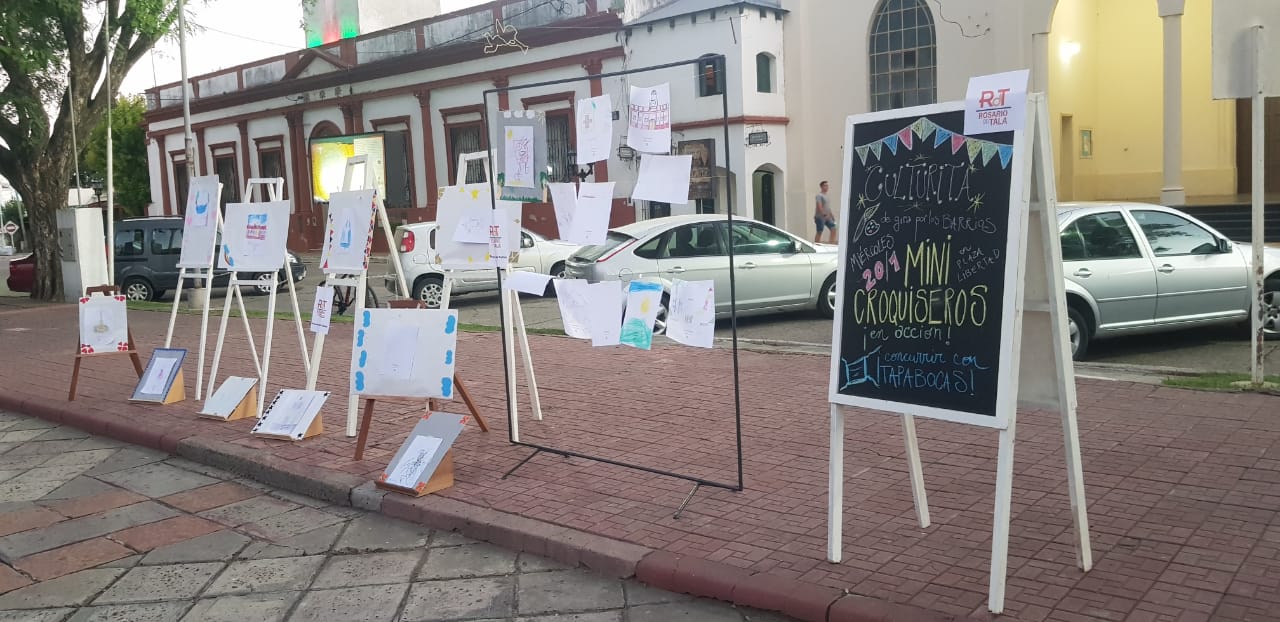 RdT
ROSARIO
DEL TALA
CULTURITA
de gira por los BARRIOS
MIÉRCOLES
20/1
MINI
CROQUISEROS
en PLAZA
LIBERTAD
¡en acción!
concurrir con
TAPABOCAS!
RdT
RdT